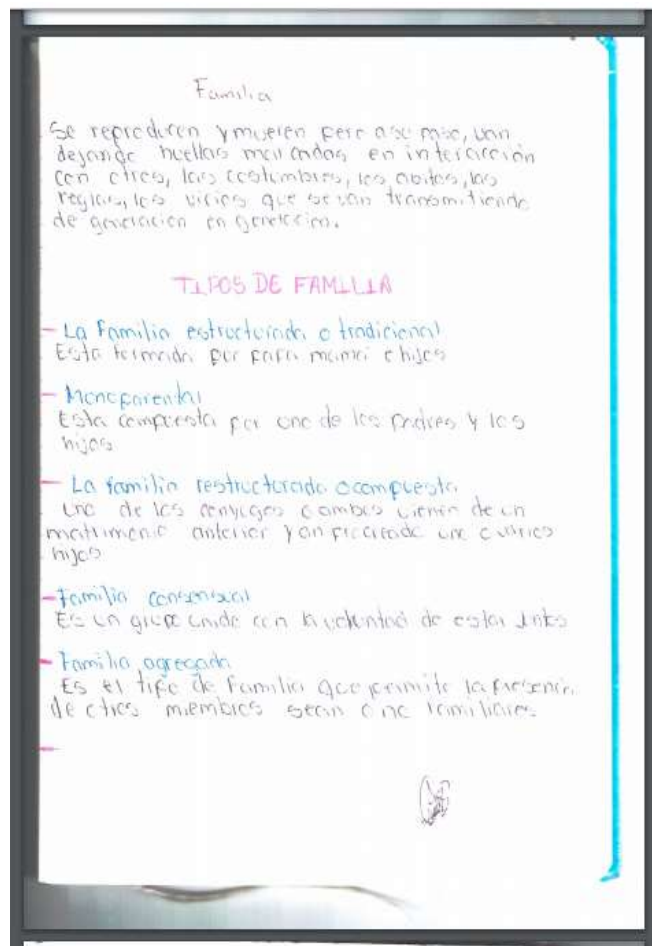 Familia
Se reproducen y mueren pero a su paso, van
dejando huellas marcadas en interacción
con otros, las costumbres, los abitos, las
reglas, los vicios que se van transmitiendo
de generación en generación.
TIPOS DE FAMILIA
- La Familia estructurada o tradicional
Esta formada por papa mama e hijos
- Monoparental
Esta compuesta por uno de los padres y los
hijos
- La familia restructurada o compuesta
uno de los conyuges o ambos vienen de un
matrimonio anterior y an procreado uno o varios
hijos
- Familia consensual
Es un grupo unido con la voluntad de estar
- Familia agregada
Es el tipo de familia que permite la presencia
de otros miembros sean o no familiares
-